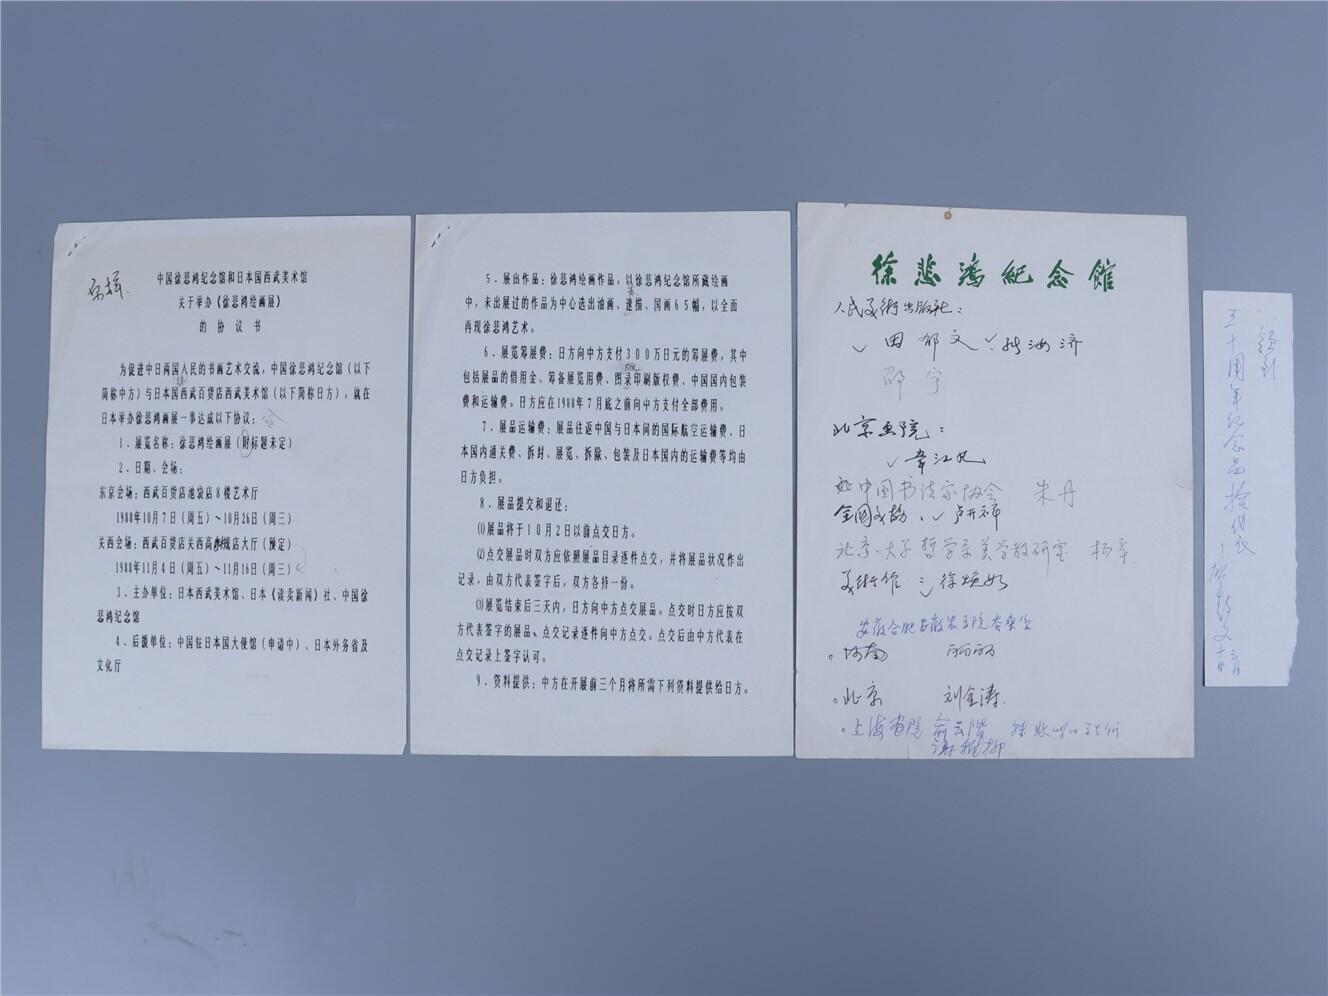 中国徐悲鸿纪念馆和日本国西武美术馆
关于举办《徐悲鸿绘画展》
的 协 议 书
为促进中日两国人民的书画艺术交流，中国徐悲鸿纪念馆（以下
简称中方）与日本国西武百货店西武美术馆（以下简称日方），就在
日本举办徐悲鸿画展一事达成以下协议：
1．展览名称：徐悲鸿绘画展（附标题未定）
2．日期、会场：
东京会场：西武百货店池袋店8楼艺术厅
1988年10月7日（周五）～10月26日（周三）
关西会场：西武百货店关西高槻店大厅（预定）
1988年11月4日（周五）～11月16日（周三）
3．主办单位：日本西武美术馆、日本《读卖新闻》社、中国徐
悲鸿纪念馆
4．后援单位：中国驻日本国大使馆（申请中）、日本外务省及
文化厅
5．展出作品：徐悲鸿绘画作品，以徐悲鸿纪念馆所藏绘画
中，未出展过的作品为中心选出油画、速描、国画65幅，以全面
再现徐悲鸿艺术。
6．展览筹展费：日方向中方支付300万日元的筹展费，其中
包括展品的借用金、筹备展览用费、图录印刷版权费、中国国内包装
费和运输费。日方应在1988年7月底之前向中方支付全部费用。
7．展品运输费：展品往返中国与日本间的国际航空运输费、日
本国内通关费、拆封、展览、拆除、包装及日本国内的运输费等均由
日方负担。
8．展品提交和退还：
⑴展品将于10月2日以前点交日方。
⑵点交展品时双方应依照展品目录逐件点交，并将展品状况作出
记录，由双方代表签字后，双方各持一份。
⑶展览结束后三天内，日方向中方点交展品。点交时日方应按双
方代表签字的展品、点交记录逐件向中方点交。点交后由中方代表在
点交记录上签字认可。
9．资料提供：中方在开展前三个月将所需下列资料提供给日方。
徐悲鸿纪念馆
人民美術出版社：
田郁文 汝济
邵宇
北京画院：
章江凡
中国书法家协会 朱丹
全国美协
北京大学哲学系美学教研室 杨辛
河南 丽丽
北京 刘金涛
上海画院 俞云阶
谢稚柳
领到
五十周年纪念品拾袋